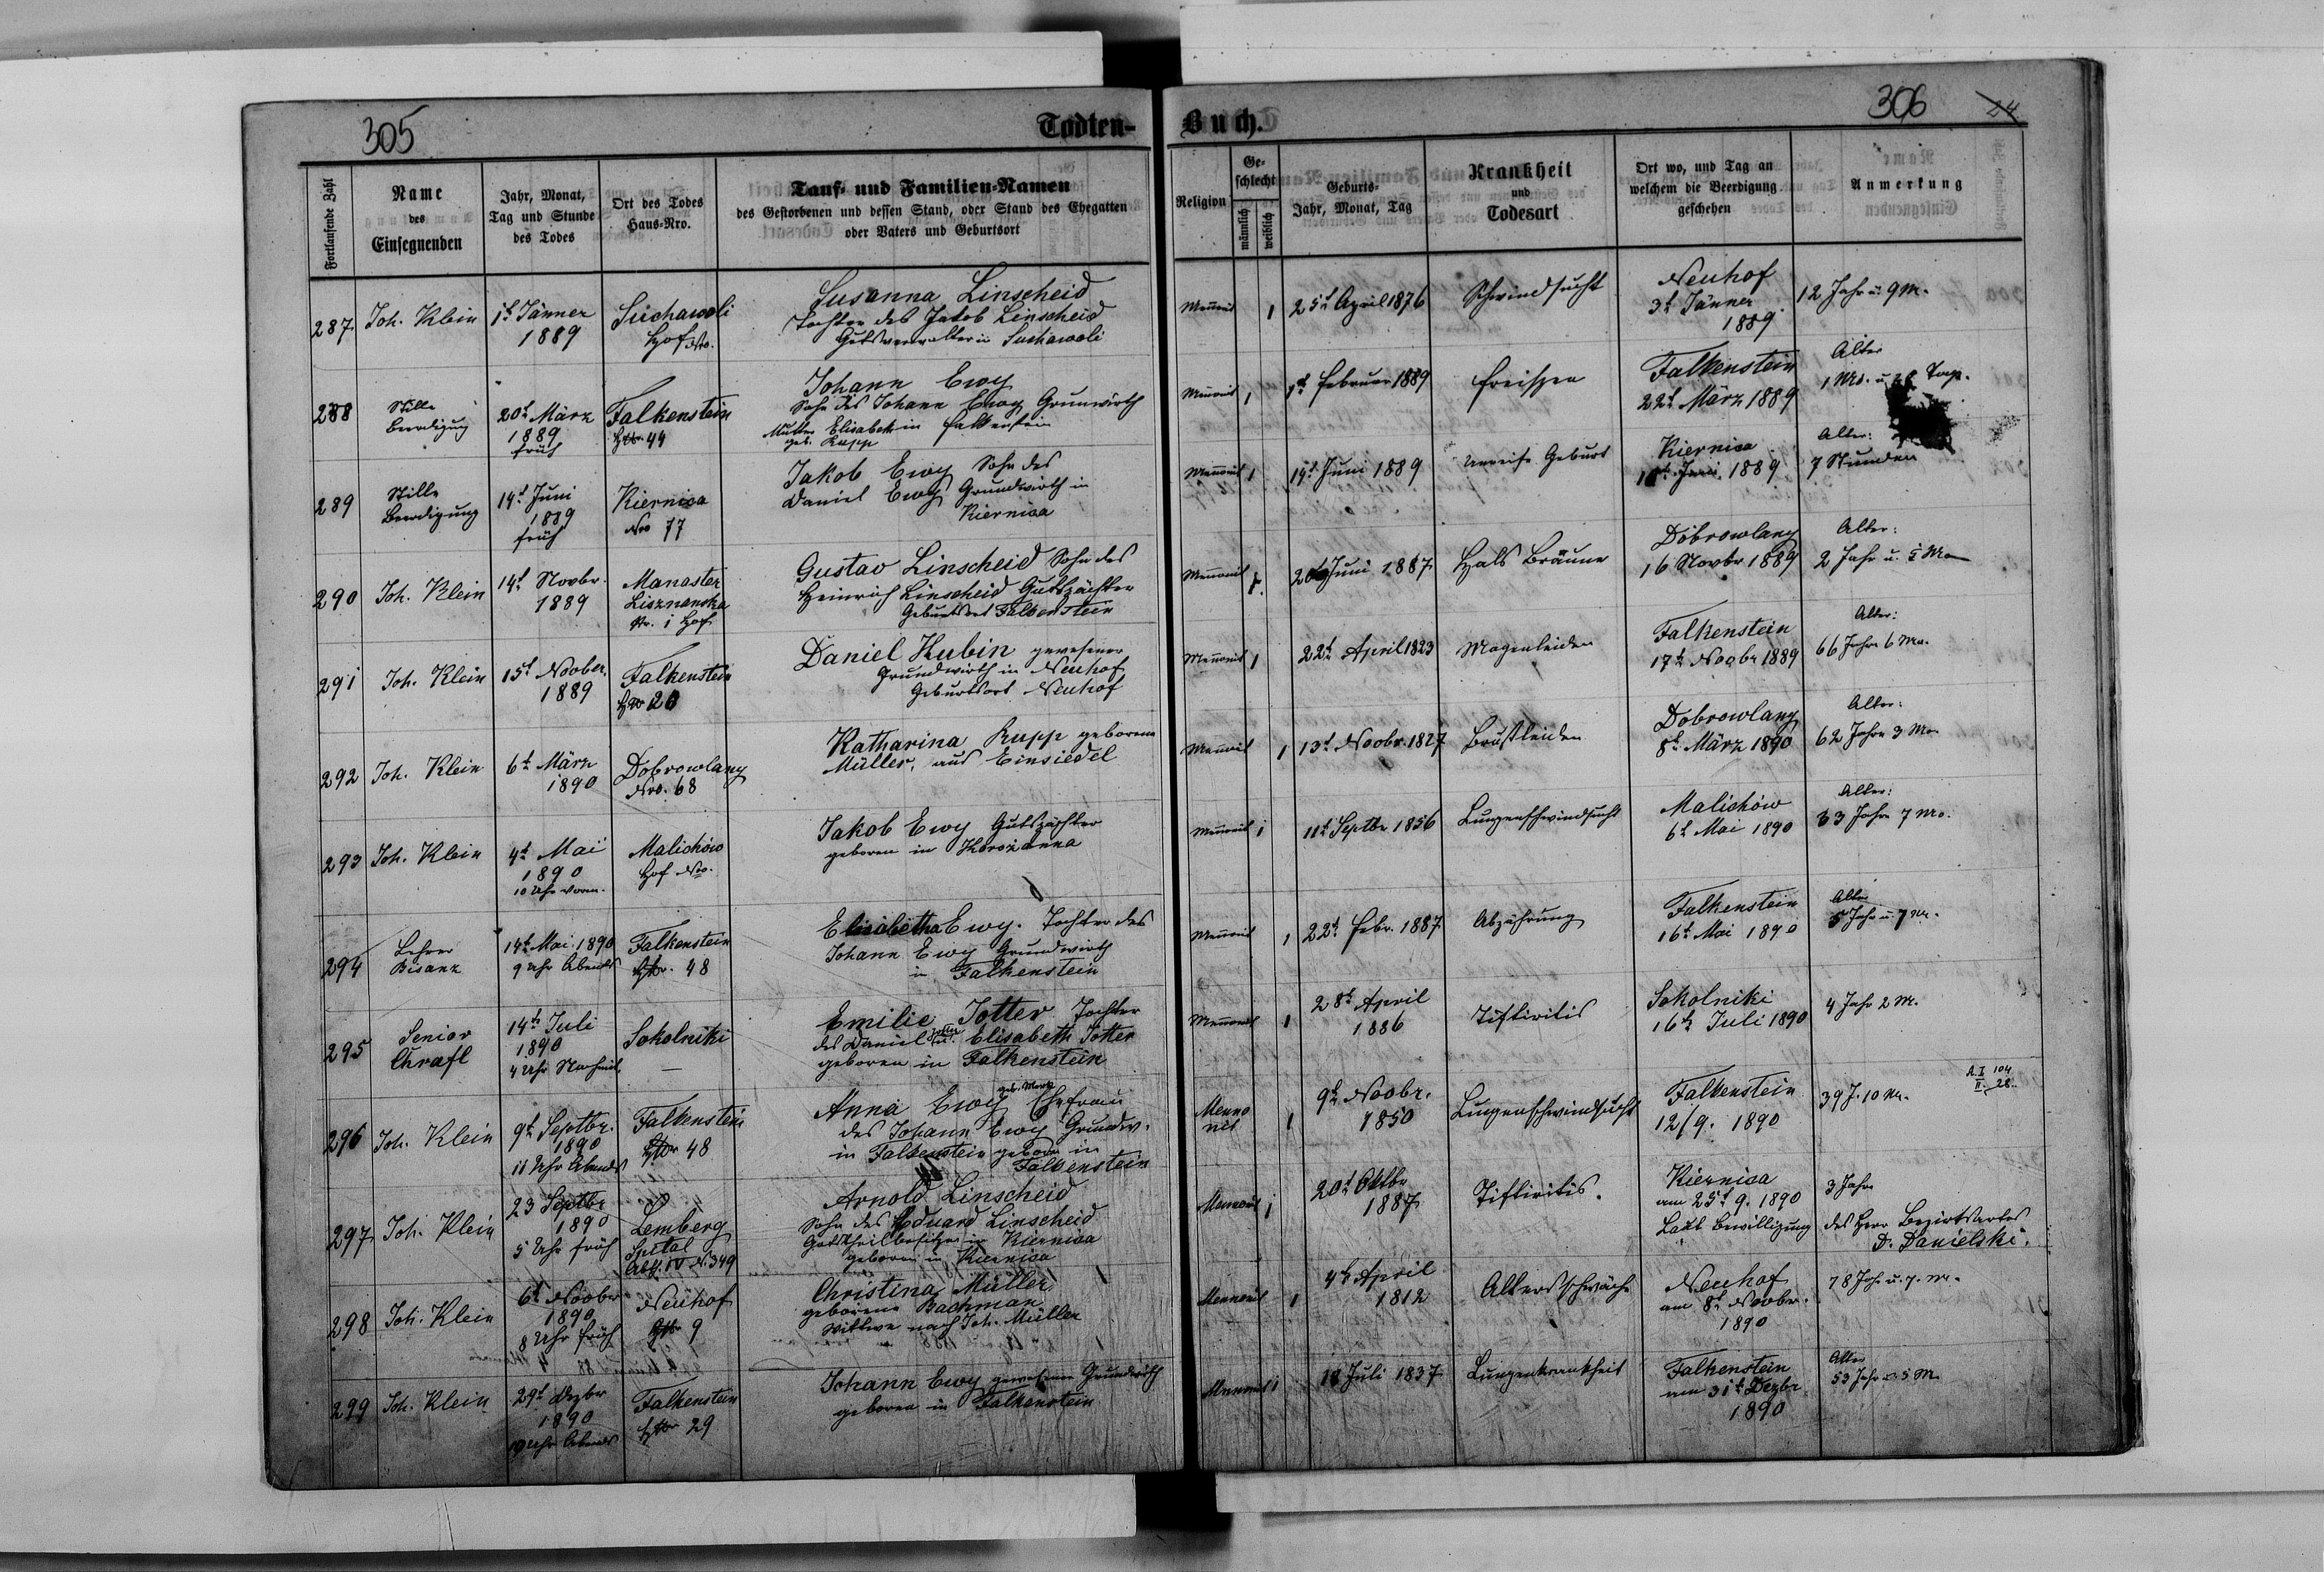 305
Todten-
Buch.
306
24
Fortlaufende Zahl
Name
des
Einsegnenden
Jahr, Monat,
Tag und Stunde
des Todes
Ort des Todes
Haus-Nro.
Tauf- und Familien-Namen
des Gestorbenen und dessen Stand, oder Stand des Ehegatten
oder Vaters und Geburtsort
Religion
Ge-
schlecht
männlich
weiblich
Geburts-
Jahr, Monat, Tag
Krankheit
und
Todesart
Ort wo, und Tag an
welchem die Beerdigung
geschehen
Anmerkung
287
Joh. Klein
1t Jänner
1889
Suchawoli
Hof Nro.
Susanna Linscheid
Tochter des Jakob Linscheid
Gutsverwalter in Suchawoli
Menonit
1
25t April 1876
Schwindsucht
Neuhof
3t Jänner
1889
12 Jahr u. 9 M.
288
Stille
Beerdigung
20t März
1889
früh
Falkenstein
44
Johann Ewy
Sohn des Johann Ewy Grunwirth
Mutter Elisabeth in Falkenstein
geb. Rupp
Menonit
1
1t Februar 1889
Freisen
Falkenstein
22t März 1889
Alter
1 Mo. u. Tage.
289
Stille
Beerdigung
14t Juni
1889
früh
Kiernica
Nro 77
Jakob Ewy Sohn des
Daniel Ewy Grundwirth in
Kiernica
Menonit
1
14t Juni 1889
Unreife Geburt
Kiernica
Juni 1889
Alter:
7 Stunden
290
Joh. Klein
14t Novbr.
1889
Manaster
Lisznanska
Nr. 1 Hof
Gustav Linscheid Sohn des
Heinrich Linscheid Gutspächter
Geburtsort Falkenstein
Menonit
1
Juni 1887
Hals Bräune
Dobrowlany
16 Novbr 1889
Alter:
2 Jahr u. 5 Mo
291
Joh. Klein
15t Novber.
1889
Falkenstein
20
Daniel Hubin gewesener
Grundwirth in Neuhof
Geburtsort Neuhof
Menonit
1
22t April 1823
Magenleiden
Falkenstein
17t Novbr 1889
Alter:
66 Jahre 6 Mo.
292
Joh. Klein
6t März
1890
Dobrowlany
Nro. 68
Katharina Rupp geborene
Müller, aus Einsiedel
Menonit
1
13t Novbr. 1827
Brustleiden
Dobrowlany
8t März 1890
Alter:
62 Jahre 3 Mo
293
Joh. Klein
4t Mai
1890
10 Uhr vorm.
Malichów
Hof Nro.
Jakob Ewy Gutspächter
geboren in Horożanna
Menonit
1
11t Septbr 1856
Lungenschwindsucht
Malichów
6t Mai 1890
Alter:
33 Jahre 7 Mo.
294
Lehrer
Bisanz
14t Mai 1890
9 Uhr Abends
Falkenstein
48
Elisabetha Ewy. Tochter des
Johann Ewy Grundwirth
in Falkenstein
Menonit
1
22t Febr. 1887
Abzehrung
Falkenstein
16t Mai 1890
Alter
Jahr u. 7 M.
295
Senior
Chrafl
14t Juli
1890
4 Uhr Nachmit.
Sokolniki
—
Emilie Jotter Tochter
des Daniel Jotter u. Elisabeth Jotter
geboren in Falkenstein
Menonit
1
28t April
1886
Tiftiritis
Sokolniki
16t Juli 1890
4 Jahr 2 M.
296
Joh. Klein
9t Septbr.
1890
11 Uhr Abends
Falkenstein
48
geb. Merk
Anna Ewy Ehefrau
des Johann Ewy Grundw.
in Falkenstein geboren in
Falkenstein
Menno
nit
1
9t Novbr.
1850
Lungenschwindsucht
Falkenstein
12/9. 1890
39 J. 10 M.
A. I 104
II. 28
297
Joh. Klein
23 Septbr
1890
5 Uhr früh
Lemberg
Spital
Abth. IV N. 349
Arnold Linscheid
Sohn des Eduard Linscheid
Gutstheilbesitzer in Kiernica
geboren in Kiernica
Mennonit
1
20t Oktbr
1887
Tiftiritis.
Kiernica
am 25t 9. 1890
Laut Bewilligung
3 Jahre
des Herr Bezirksartes
D. Danielski.
298
Joh. Klein
6t Novbr
1890
8 Uhr früh
Neuhof
9
Christina Müller
geborene Bachman
Wittwe nach Joh. Müller
Mennonit
1
4t April
1812
Altersschwäche
Neuhof
am 8t Novbr.
1890
78 Jahr u. 7. M.
299
Joh. Klein
29t Dezbr
1890
Uhr Abends
Falkenstein
29
Johann Ewy gewesener Grundwirth
geboren in Falkenstein
Mennonit
1
18 Juli 1837
Lungenkrankheit
Falkenstein
am 31t Dezbr.
1890
Alter
53 Jahr u. 5 M.